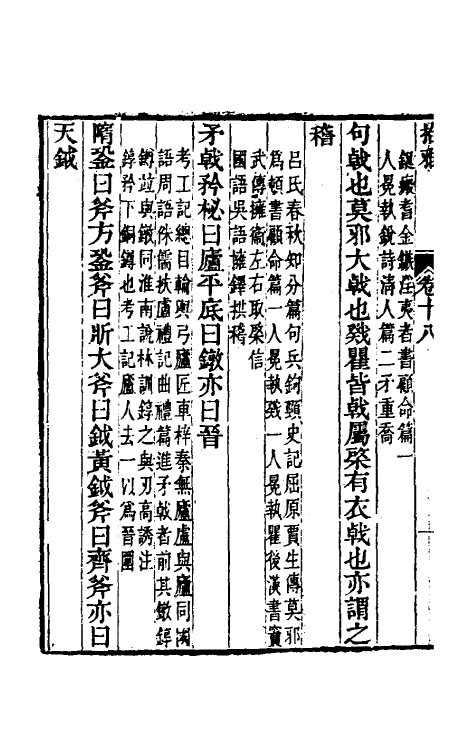 拾雅 卷十八
鋋瘢耆金鏃注夷者書顧命篇一
人冕執銳詩清人篇二矛重喬
句戟也莫邪大戟也戣瞿皆戟屬棨有衣戟也亦謂之
稽
呂氏春秋知分篇句兵鉤頸史記屈原賈生傳莫邪
爲頓書顧命篇一人冕執戣一人冕執瞿後漢書竇
武傳擁衞左右取棨信
國語吳語擁鐸拱稽
矛戟矜柲曰廬平底曰鐓亦曰晉
考工記總目輪輿弓廬匠車梓秦無廬盧與廬同國
語周語侏儒扶盧禮記曲禮篇進矛戟者前其鐓錞
鐏竝與鐓同淮南說林訓錞之與刃高誘注
錞矜下銅鐏也考工記廬人去一以爲晉圍
隋銎曰斧方銎斧曰斨大斧曰鉞黃鉞斧曰齊斧亦曰
天鉞